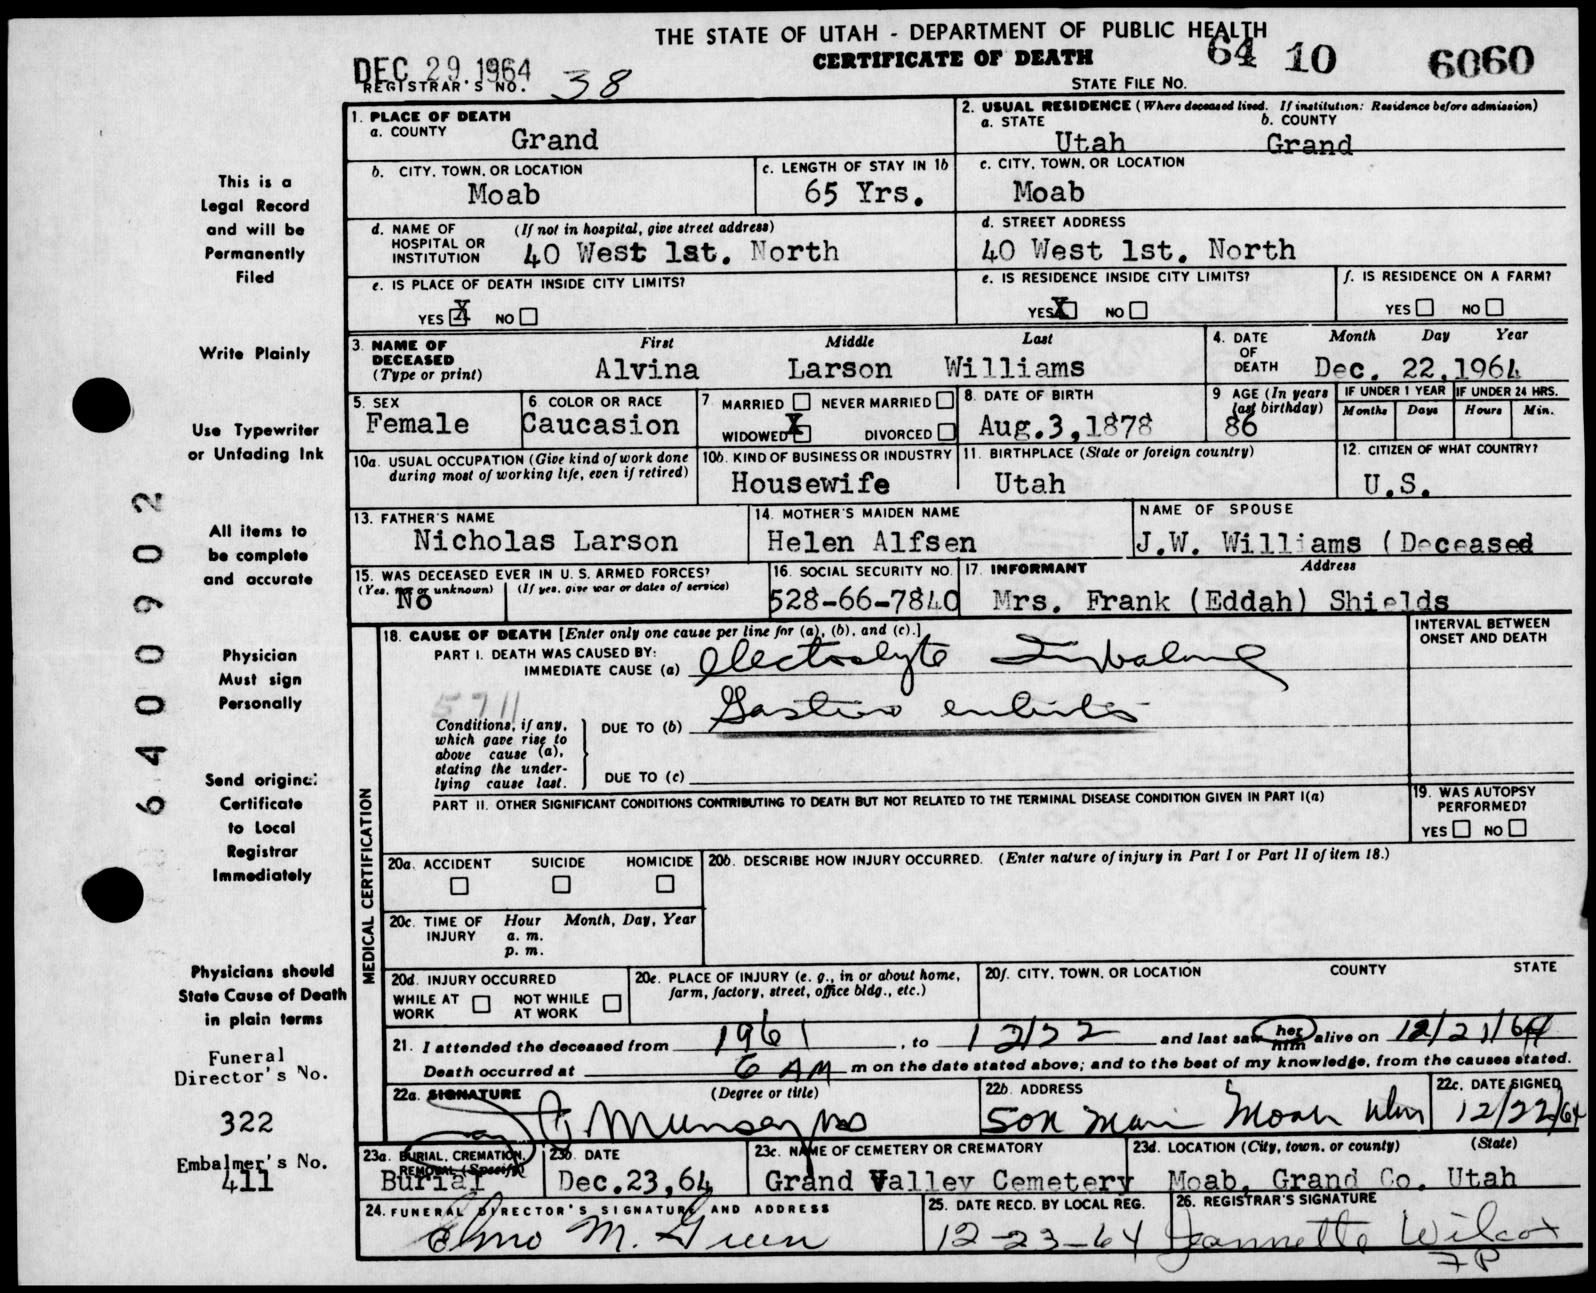 THE STATE OF UTAH - DEPARTMENT OF PUBLIC HEALTH
CERTIFICATE OF DEATH
64 10 6060
DEC 29.1964
REGISTRAR'S NO. 38
STATE FILE NO.
1. PLACE OF DEATH
a. COUNTY
Grand
2. USUAL RESIDENCE (Where deceased lived. If institution: Residence before admission)
a. STATE b. COUNTY
Utah Grand
b. CITY, TOWN, OR LOCATION
Moab
c. LENGTH OF STAY IN 1b
65 Yrs.
c. CITY, TOWN, OR LOCATION
Moab
d. NAME OF HOSPITAL OR INSTITUTION (If not in hospital, give street address)
40 West 1st. North
d. STREET ADDRESS
40 West 1st. North
e. IS PLACE OF DEATH INSIDE CITY LIMITS?
YES X NO
e. IS RESIDENCE INSIDE CITY LIMITS?
YES X NO
f. IS RESIDENCE ON A FARM?
YES NO
3. NAME OF DECEASED (Type or print)
First Middle Last
Alvina Larson Williams
4. DATE OF DEATH
Month Day Year
Dec. 22,1964
5. SEX
Female
6. COLOR OR RACE
Caucasion
7 MARRIED NEVER MARRIED
WIDOWED X DIVORCED
8. DATE OF BIRTH
Aug.3,1878
9 AGE (In years last birthday)
86
IF UNDER 1 YEAR IF UNDER 24 HRS.
Months Days Hours Min.
10a. USUAL OCCUPATION (Give kind of work done during most of working life, even if retired)
10b. KIND OF BUSINESS OR INDUSTRY
Housewife
11. BIRTHPLACE (State or foreign country)
Utah
12. CITIZEN OF WHAT COUNTRY?
U.S.
13. FATHER'S NAME
Nicholas Larson
14. MOTHER'S MAIDEN NAME
Helen Alfsen
NAME OF SPOUSE
J.W. Williams (Deceased
15. WAS DECEASED EVER IN U. S. ARMED FORCES?
(Yes, no or unknown) (If yes, give war or dates of service)
No
16. SOCIAL SECURITY NO.
528-66-7840
17. INFORMANT Address
Mrs. Frank (Eddah) Shields
MEDICAL CERTIFICATION
18. CAUSE OF DEATH [Enter only one cause per line for (a), (b), and (c).]
INTERVAL BETWEEN ONSET AND DEATH
PART I. DEATH WAS CAUSED BY:
IMMEDIATE CAUSE (a) electrolyte Imbalance
5711
Conditions, if any, which gave rise to above cause (a), stating the underlying cause last.
DUE TO (b) Gastro enteritis
DUE TO (c)
PART II. OTHER SIGNIFICANT CONDITIONS CONTRIBUTING TO DEATH BUT NOT RELATED TO THE TERMINAL DISEASE CONDITION GIVEN IN PART I(a)
19. WAS AUTOPSY PERFORMED?
YES NO
20a. ACCIDENT SUICIDE HOMICIDE
20b. DESCRIBE HOW INJURY OCCURRED. (Enter nature of injury in Part I or Part II of item 18.)
20c. TIME OF INJURY Hour Month, Day, Year
a. m.
p. m.
20d. INJURY OCCURRED
WHILE AT WORK NOT WHILE AT WORK
20e. PLACE OF INJURY (e. g., in or about home, farm, factory, street, office bldg., etc.)
20f. CITY, TOWN, OR LOCATION COUNTY STATE
21. I attended the deceased from 1961, to 12/22 and last saw her him alive on 12/21/64
Death occurred at 6 AM m on the date stated above; and to the best of my knowledge, from the causes stated.
22a. SIGNATURE (Degree or title)
Munsey MD
22b. ADDRESS
Main Moab
22c. DATE SIGNED
12/22/64
23a. BURIAL, CREMATION, REMOVAL (Specify)
Burial
23b. DATE
Dec.23,64
23c. NAME OF CEMETERY OR CREMATORY
Grand Valley Cemetery
23d. LOCATION (City, town, or county) (State)
Moab, Grand Co. Utah
24. FUNERAL DIRECTOR'S SIGNATURE AND ADDRESS
Elmo M. Green
25. DATE RECD. BY LOCAL REG.
12-23-64
26. REGISTRAR'S SIGNATURE
Jeannette Wilcox
FP
This is a
Legal Record
and will be
Permanently
Filed
Write Plainly
Use Typewriter
or Unfading Ink
All items to
be complete
and accurate
Physician
Must sign
Personally
Send original
Certificate
to Local
Registrar
Immediately
Physicians should
State Cause of Death
in plain terms
Funeral
Director's No.
322
Embalmer's No.
411
6400902